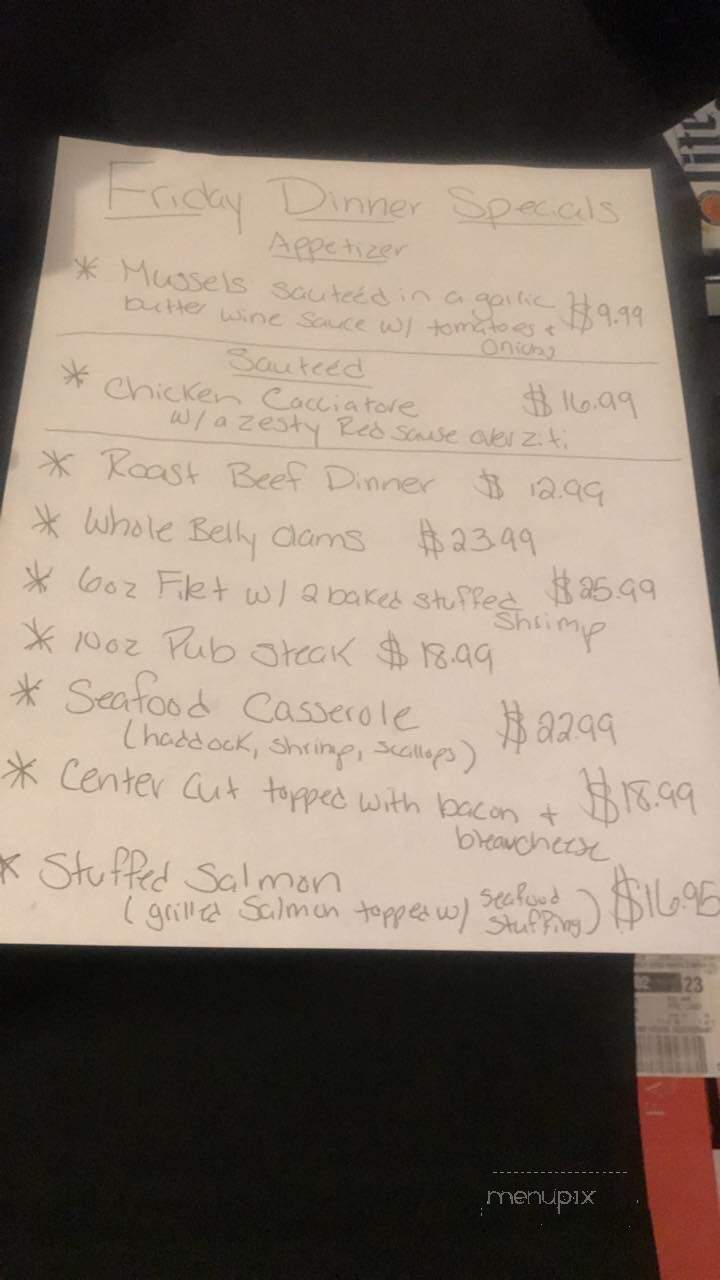 Friday Dinner Specials
Appetizer
* Mussels sauteéd in a garlic $9.99
butter wine sauce w/ tomatoes +
onions
Sauteéd
* Chicken Cacciatore $16.99
w/ a zesty Red sause over ziti
* Roast Beef Dinner $12.99
* Whole Belly Clams $23.99
* 6oz Filet w/ 2 baked stuffed $25.99
Shrimp
* 10oz Pub Steak $18.99
* Seafood Casserole $22.99
(haddock, shrimp, scallops)
* Center Cut topped with bacon + $18.99
* Stuffed Salmon
(grilled Salmon topped w/ seafood stuffing) $16.95
23
menupix